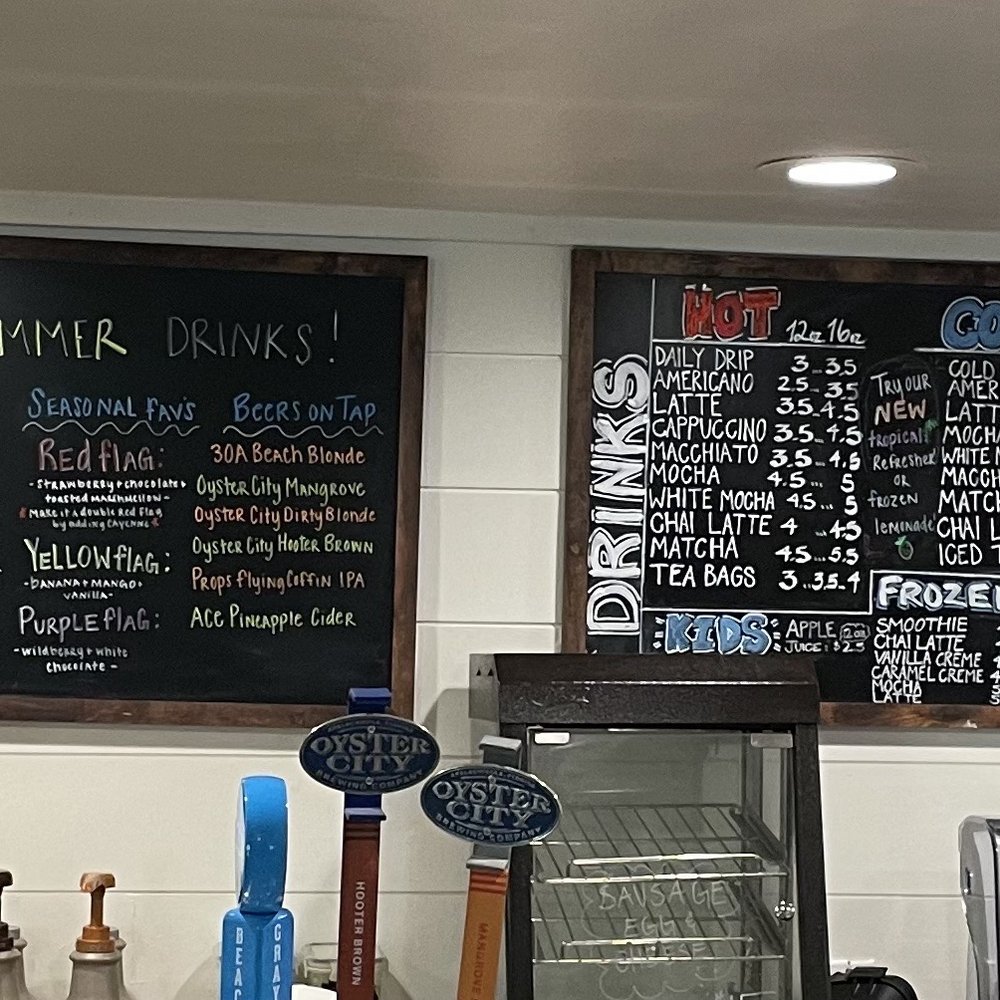 MMER DRINKS!
SEASONAL FAV'S
Red flag:
- strawberry + chocolate +
toasted marshmellow -
Make it a double Red flag
by adding CAYENNE
YELLOW flag:
- BANANA + MANGO +
VANILLA -
PURPLE flag:
- wildberry + white
chocolate -
BEERS ON TAP
30A Beach Blonde
Oyster City Mangrove
Oyster City Dirty Blonde
Oyster City Hooter Brown
Props flying Coffin IPA
ACE Pineapple Cider
DRINKS
HOT 12oz 16oz
DAILY DRIP 3 ... 3.5
AMERICANO 2.5 ... 3.5
LATTE 3.5 .. 4.5
CAPPUCCINO 3.5 ... 4.5
MACCHIATO 3.5 ... 4.5
MOCHA 4.5 .... 5
WHITE MOCHA 4.5 ... 5
CHAI LATTE 4 .... 4.5
MATCHA 4.5 ... 5.5
TEA BAGS 3 ... 3.5 . 4
KIDS APPLE 12oz
JUICE: $2.5
TRY OUR
NEW
tropical
Refresher
OR
frozen
lemonade
CO
COLD
AMER
LATT
MOCHA
WHITE M
MACCH
MATCH
CHAI L
ICED T
FROZE
SMOOTHIE
CHAI LATTE
VANILLA CREME
CARAMEL CREME
MOCHA
LATTE
OYSTER
CITY
BREWING COMPANY
HOOTER BROWN
OYSTER
CITY
BREWING COMPANY
MANGROVE
BEAC
GRAY
SAUSAGE
EGG &
CHEESE